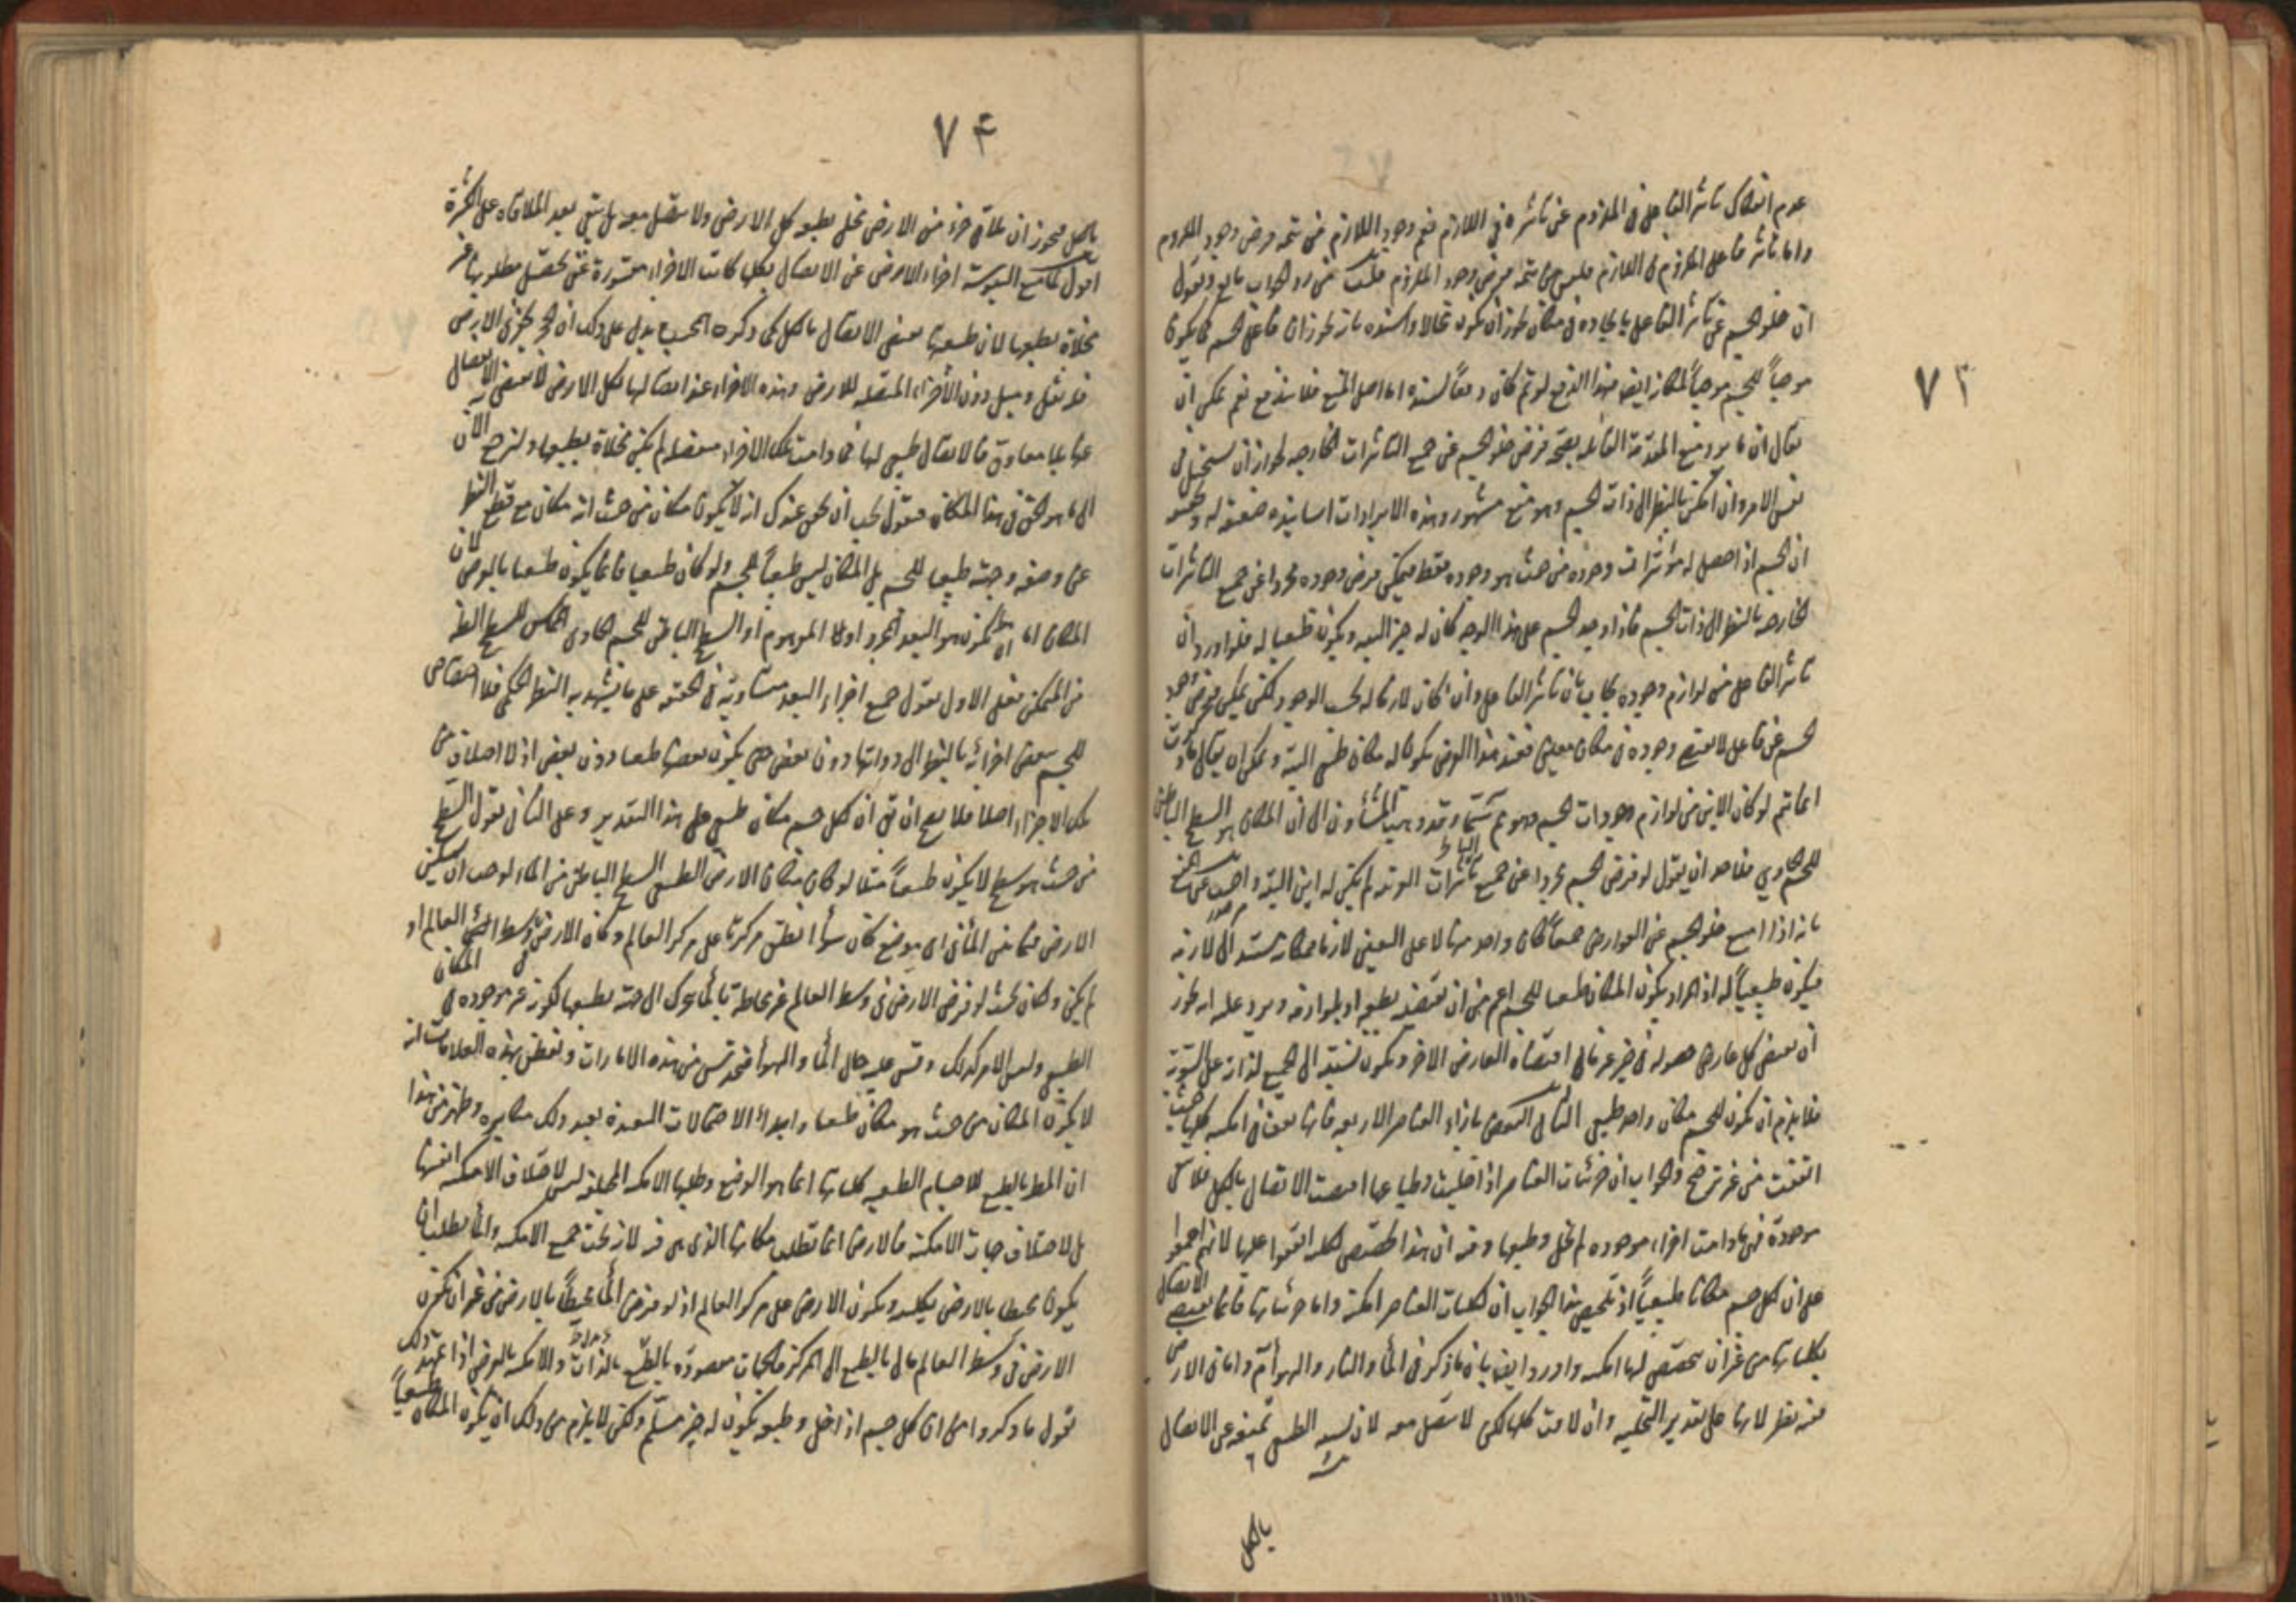 ٧٣
عدم انفكاك تأثير الفاعل فى الملزوم عن تأثيره فى اللازم فنم وجود اللازم من تتمة فرض وجود الملزوم
واما تأثير فاعل الملزوم فى اللازم فليس من تتمة فرض وجود الملزوم قلت من رد الجواب مانع ونقول
ان خلو الجسم عن تأثير الفاعل بايجاده فى مكان يجوز ان يكون محالا واسنده بانه يجوز ان فاعل الجسم كما يكون
موجباً للجسم موجباً لمكانه ايضا فهذا الدفع لو تم كان دفعاً لسنده اما اصل المنع فلا يندفع نعم يمكن ان
يقال ان ما يرد منع المقدمة القائلة بصحة فرض خلو الجسم عن جميع التأثيرات الخارجية لجواز ان يستحيل فى
نفس الامر وان امكن بالنظر الى ذات الجسم وهو منع مشهور وهذه الايرادات اسانيده ضعيفة له
ان الجسم اذا حصل له مؤثرات وجوده من حيث هو وجوده فقط فيمكن فرض وجوده مجردا عن جميع التأثيرات
الخارجية بالنظر الى ذات الجسم فاذا وجد الجسم على هذا الوجه كان له حيز البتة ويكون طبيعيا له فلو اورد ان
تأثير الفاعل من لوازم وجوده يجاب بان تأثير الفاعل وان كان لازما له بحسب الوجود لكن يمكن فرض وجود
الجسم عن فاعل لا يقتضى وجوده فى مكان معين فعند هذا الفرض يكون له مكان طبيعى البتة ويمكن ان يقال ما ذكرت
انما يتم لو كان الاين من لوازم وجودات الجسم وهو غير مسلم وقد ذهب المشاؤن الى ان المكان هو السطح الباطن
للجسم الحاوى فلاحد ان يقول لو فرض الجسم مجردا عن جميع تأثيرات الغير لم يكن له اين البتة واجيب عن المنع
بانه اذا امتنع خلو الجسم عن العوارض جميعاً كان واحد منها لا على التعيين لازما فمكانه مستند الى لازمه
فيكون طبيعياً له اذ المراد بكون المكان طبيعيا للجسم اعم من ان يقتضيه بطبعه او بلوازمه ويرد عليه انه يجوز
ان يقتضى كل عارض حصوله فى حيز غير ما فى اقتضاء العارض الآخر ويكون نسبته الى الجميع لذاته على السوية
فلا يلزم ان يكون للجسم مكان واحد طبيعى الثانى النقض باجزاء العناصر الاربعة فانها تقف فى امكنة كلياتها حيث
اتفقت من غير ترجح والجواب ان جزئيات العناصر اذا خليت وطباعها اقتضت الاتصال بالكل فلا تبقى
موجودة فهى ما دامت اجزاء موجودة لم تخل وطبعها وفيه ان هذا تخصيص لكلية اتفقوا عليها لانهم اجمعوا
على ان لكل جسم مكانا طبيعياً اذ تلخيص هذا الجواب ان لكليات العناصر امكنة واما جزئياتها فانما تقتضى الاتصال
بكلياتها من غير ان تختص لها امكنة واورد ايضا بان ما ذكر فى الماء والنار والهواء تم واما فى الارض
ففيه نظر لانها على تقدير التخلية وان لاقت كلها لكن لا تتصل معه لان يبسه الطبيعى يمنعه عن الاتصال
بالكل
٧٤
بالكل فيجوز ان تلاقى جزء من الارض مخلى بطبعه كل الارض ولا يتصل معه بل يبقى بعد الملاقاة على الكثرة
اقول لما منع اليبوسة اجزاء الارض عن الاتصال بكلها كانت الاجزاء مقسورة عن تحصيل مطلوبها غير
مخلاة بطبعها لان طبيعتها تقتضى الاتصال بالكل كما ذكره المجيب يدل على ذلك ان الحجر يخرق الارض
فله ثقل وميل دون الأجزاء المتصلة للارض وهذه الاجزاء عند اتصالها لكل الارض لا تقتضى الانفصال
عنها بلا معاوق فالاتصال طبيعى لها فما دامت تلك الاجزاء منفصلة لم يكن مخلاة بطبيعتها ولنرجع الآن
الى ما هو الحق فى هذا المكان فنقول يجب ان يحقق عندك انه لا يكون مكان من حيث انه مكان مع قطع النظر
عن وضعه وجهته طبيعيا للجسم بل المكان ليس طبيعياً للجسم ولو كان طبيعيا فانما يكون طبيعيا بالعرض لان
المكان اما ان يكون هو البعد المجرد اولا الموهوم أو السطح الباطن للجسم الحاوى المماس للسطح الظاهر
من المتمكن فعلى الاول نقول جميع اجزاء البعد متساوية فى الحقيقة على ما يشهد به النظر الحكمى فلا اختصاص
للجسم ببعض اجزائه بالنظر الى ذواتها دون بعض حتى يكون بعضها طبيعيا دون بعض اذ لا اختلاف فى
تلك الاجزاء اصلا فلا يصح ان يقال ان لكل جسم مكان طبيعى على هذا التقدير وعلى الثانى نقول السطح
من حيث هو سطح لا يكون طبيعياً مثلا لو كان مكان الارض الطبيعى السطح الباطن من الماء لوجب ان تسكن
الارض فيما بين الماء فى اى موضع كان سواء انطبق مركزها على مركز العالم وكان الارض فى وسط العالم او
لم يكن وكان بحيث لو فرض الارض فى وسط العالم غير محاطة بالماء تحرك الى جهة بطبعها لكونه غير موجودة فى المكان
الطبيعى وليس الامر كذلك وقس عليه حال الماء والهواء فتحدس من هذه الامارات وتفطن بهذه العلامات انه
لا يكون المكان من حيث هو مكان طبيعيا وابداء الاحتمالات البعيدة بعد ذلك مكابرة وظهر من هذا
ان المطلوب بالطبع للاجسام الطبيعية كلياتها انما هو الوضع وطلبها الامكنة المختلفة ليس لاختلاف الامكنة انفسها
بل لاختلاف جهات الامكنة فالارض انما تطلب مكانها الذى هى فيه لانه تحت جميع الامكنة والماء يطلب ان
يكون محيطا بالارض بكليته ويكون الارض على مركز العالم اذ لو فرض الماء محيطاً بالارض من غير ان تكون
الارض فى وسط العالم مال بالطبع الى المركز فالجهات مقصودة بالطبع بالذات والامكنة بالعرض اذا تمهد ذلك
نقول ما ذكروا من ان كل جسم اذا خلى وطبعه يكون له حيز مسلم ولكن لا يلزم من ذلك ان يكون المكان طبيعياً